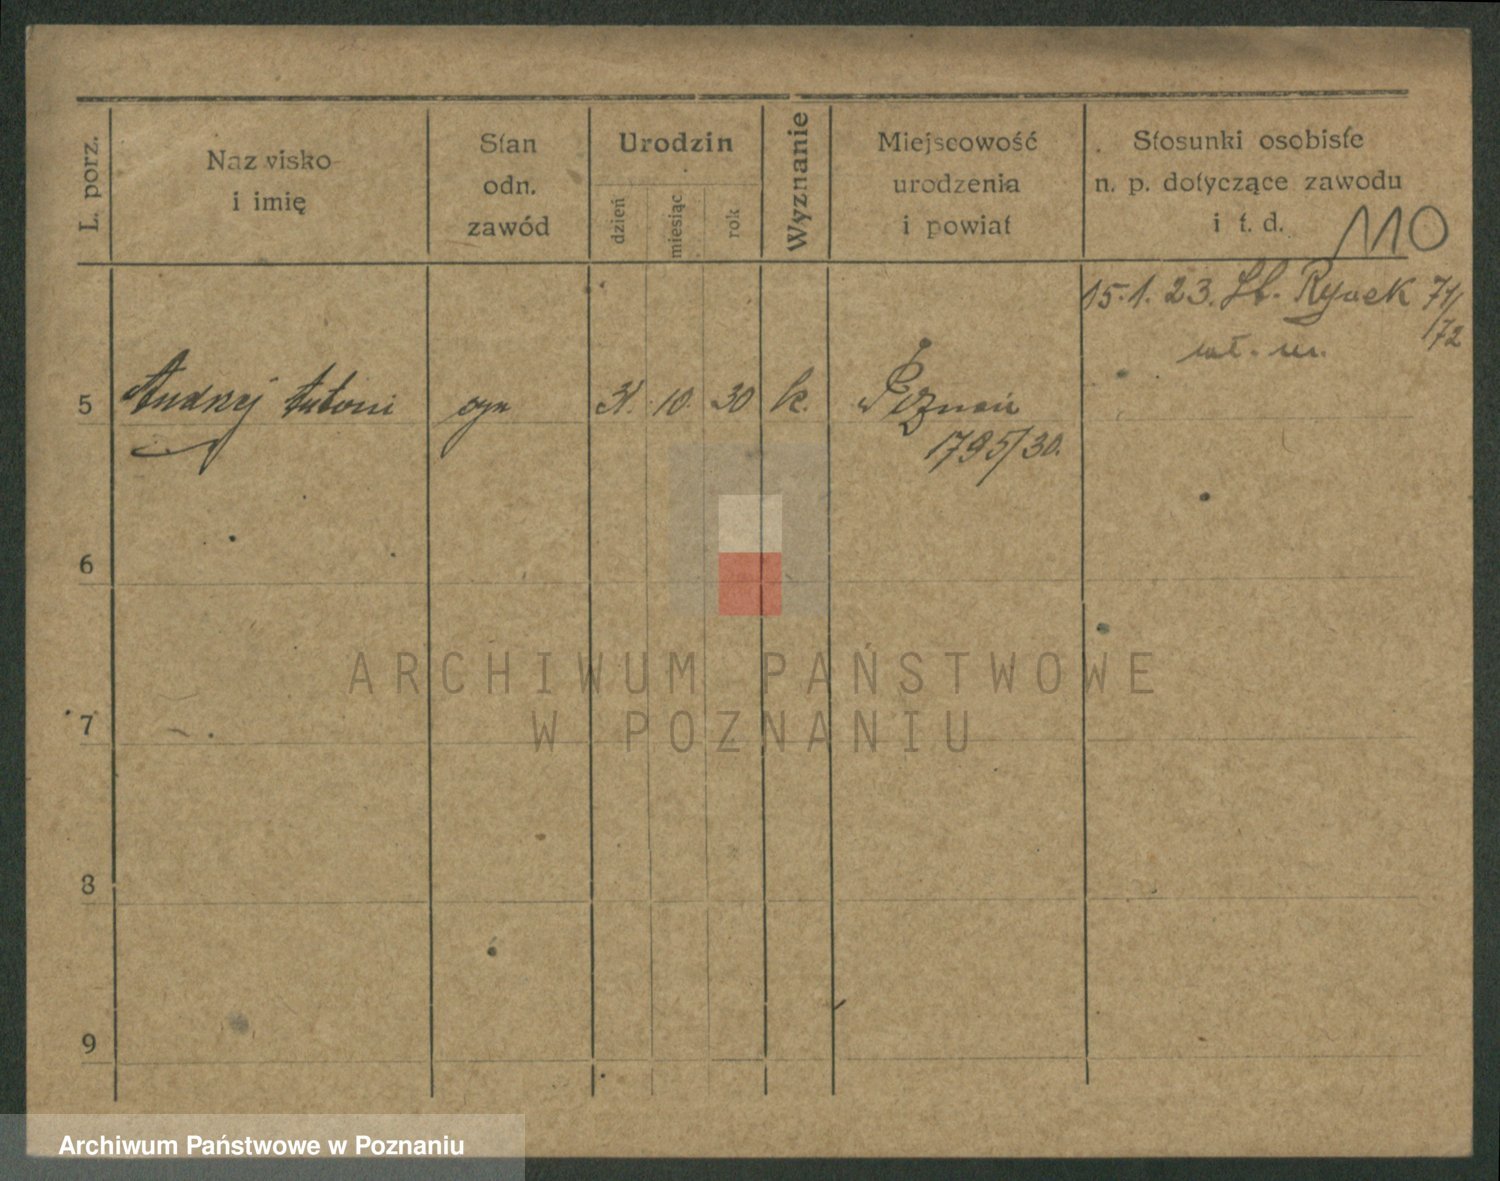 L. porz.
Nazwisko
i imię
Stan
odn.
zawód
Urodzin
dzień
miesiąc
rok
Wyznanie
Miejscowość
urodzenia
i powiat
Stosunki osobiste
n. p. dotyczące zawodu
i t. d.
110
15.1.23. St. Rynek 71/
72
5 Andrzej Antoni syn 31. 10. 30 k. Poznań
1795/30.
6
7
8
9
ARCHIWUM PAŃSTWOWE
W POZNANIU
Archiwum Państwowe w Poznaniu